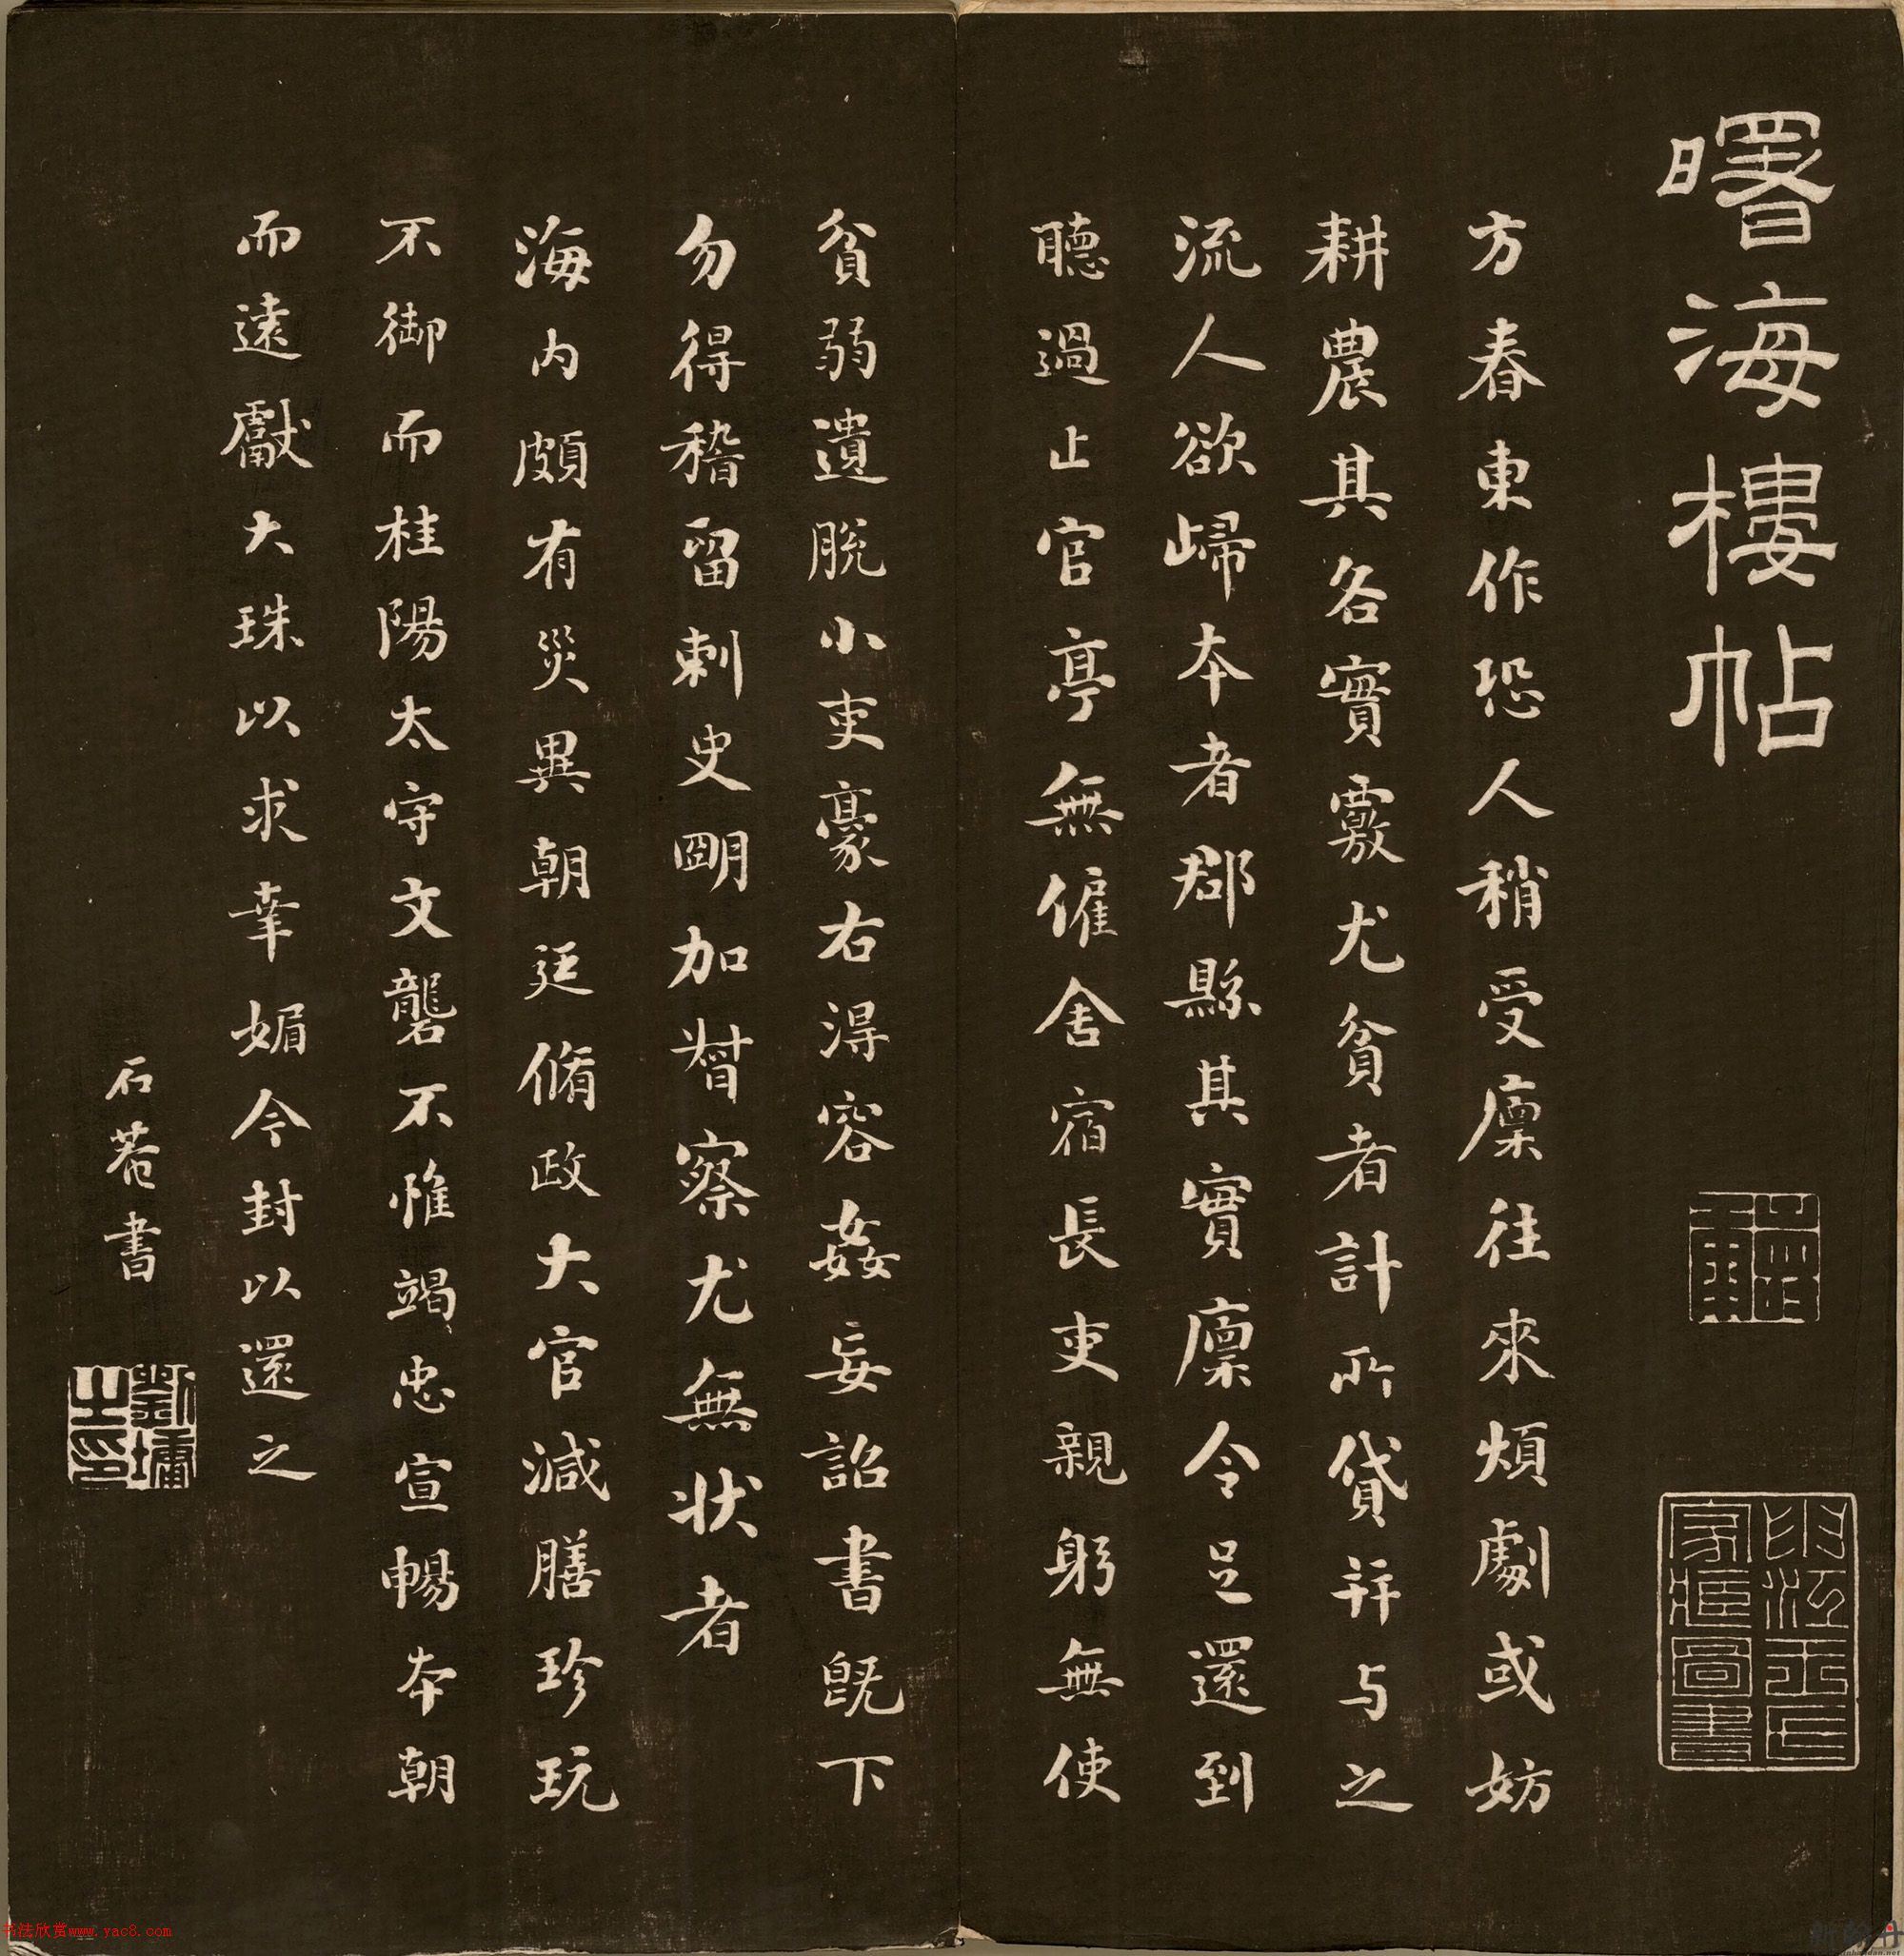 曙海樓帖
方春東作恐人稍受廩往來煩劇或妨
耕農其各實覈尤貧者計所貸并与之
流人欲歸本者郡縣其實廩令足還到
聽過止官亭無僱舍宿長吏親躬無使
貧弱遺脫小吏豪右得容姦妄詔書既下
勿得稽留刺史明加督察尤無狀者
海内頗有災異朝廷脩政大官減膳珍玩
不御而桂陽太守文礱不惟竭忠宣暢本朝
而遠獻大珠以求幸媚今封以還之
石菴書
劉墉之印
书法欣赏www.yac8.com